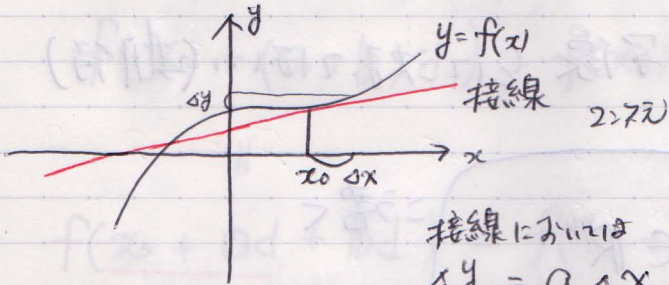 y
y = f(x)
Δy
接線
2次元
x
x₀ Δx
接線においては
Δy = a Δx